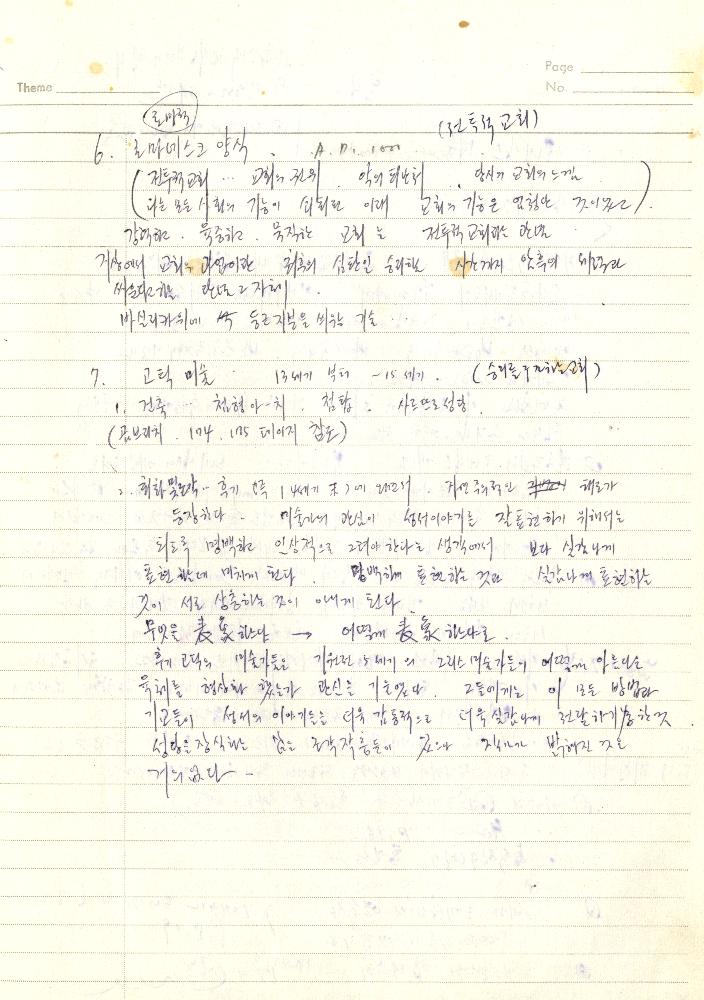 Theme
Page
No.
로마적
6. 로마네스크 양식. A.D. 1000 (전투적 교회)
(전투적교회 … 교회의 권위. 악의 피난처. 당시 교회의 느낌
다른 모든 사회의 기능이 쇠퇴된 이래 교회의 기능은 엄청난 것이었고)
강력하고. 육중하고. 묵직한 교회는 전투적 교회라는 관념
지상에서 교회의 과업이란 최후의 심판일 승리하는 시간까지 암흑의 세력과
싸운다는 관념 그 자체.
바실리카위에 둥근지붕을 씌우는 기술…
7. 고딕 미술 13세기 부터 -15세기. (승리를 구가하는 교회)
1. 건축 … 첨형아-치. 첨탑. 샤르뜨르성당.
(곰브리치. 174. 175 페이지 참조)
2. 회화및조각 … 후기 고딕 (14세기 末)에 와서. 자연주의적인 태도가
등장하다. 미술가의 관심이 성서이야기를 잘표현하기 위해서는
되도록 명백하고 인상적으로 그려야 한다는 생각에서 보다 실감나게
표현하는데 미치게 된다. 명백하게 표현하는 것과 실감나게 표현하는
것이 서로 상충하는 것이 아니게 된다.
무엇을 表象하느냐 → 어떻게 表象하느냐로.
후기 고딕의 미술가들은 기원전 5세기의 그리스 미술가들이 어떻게 아름다운
육체를 형상화 했는가 관심을 기울였다. 그들에게는 이 모든 방법과
기교들이 성서의 이야기들을 더욱 감동적으로 더욱 실감나게 전달하기 위한것
성당을 장식하는 많은 조각작품들이 있으나 작가가 밝혀진 것은
거의 없다 -